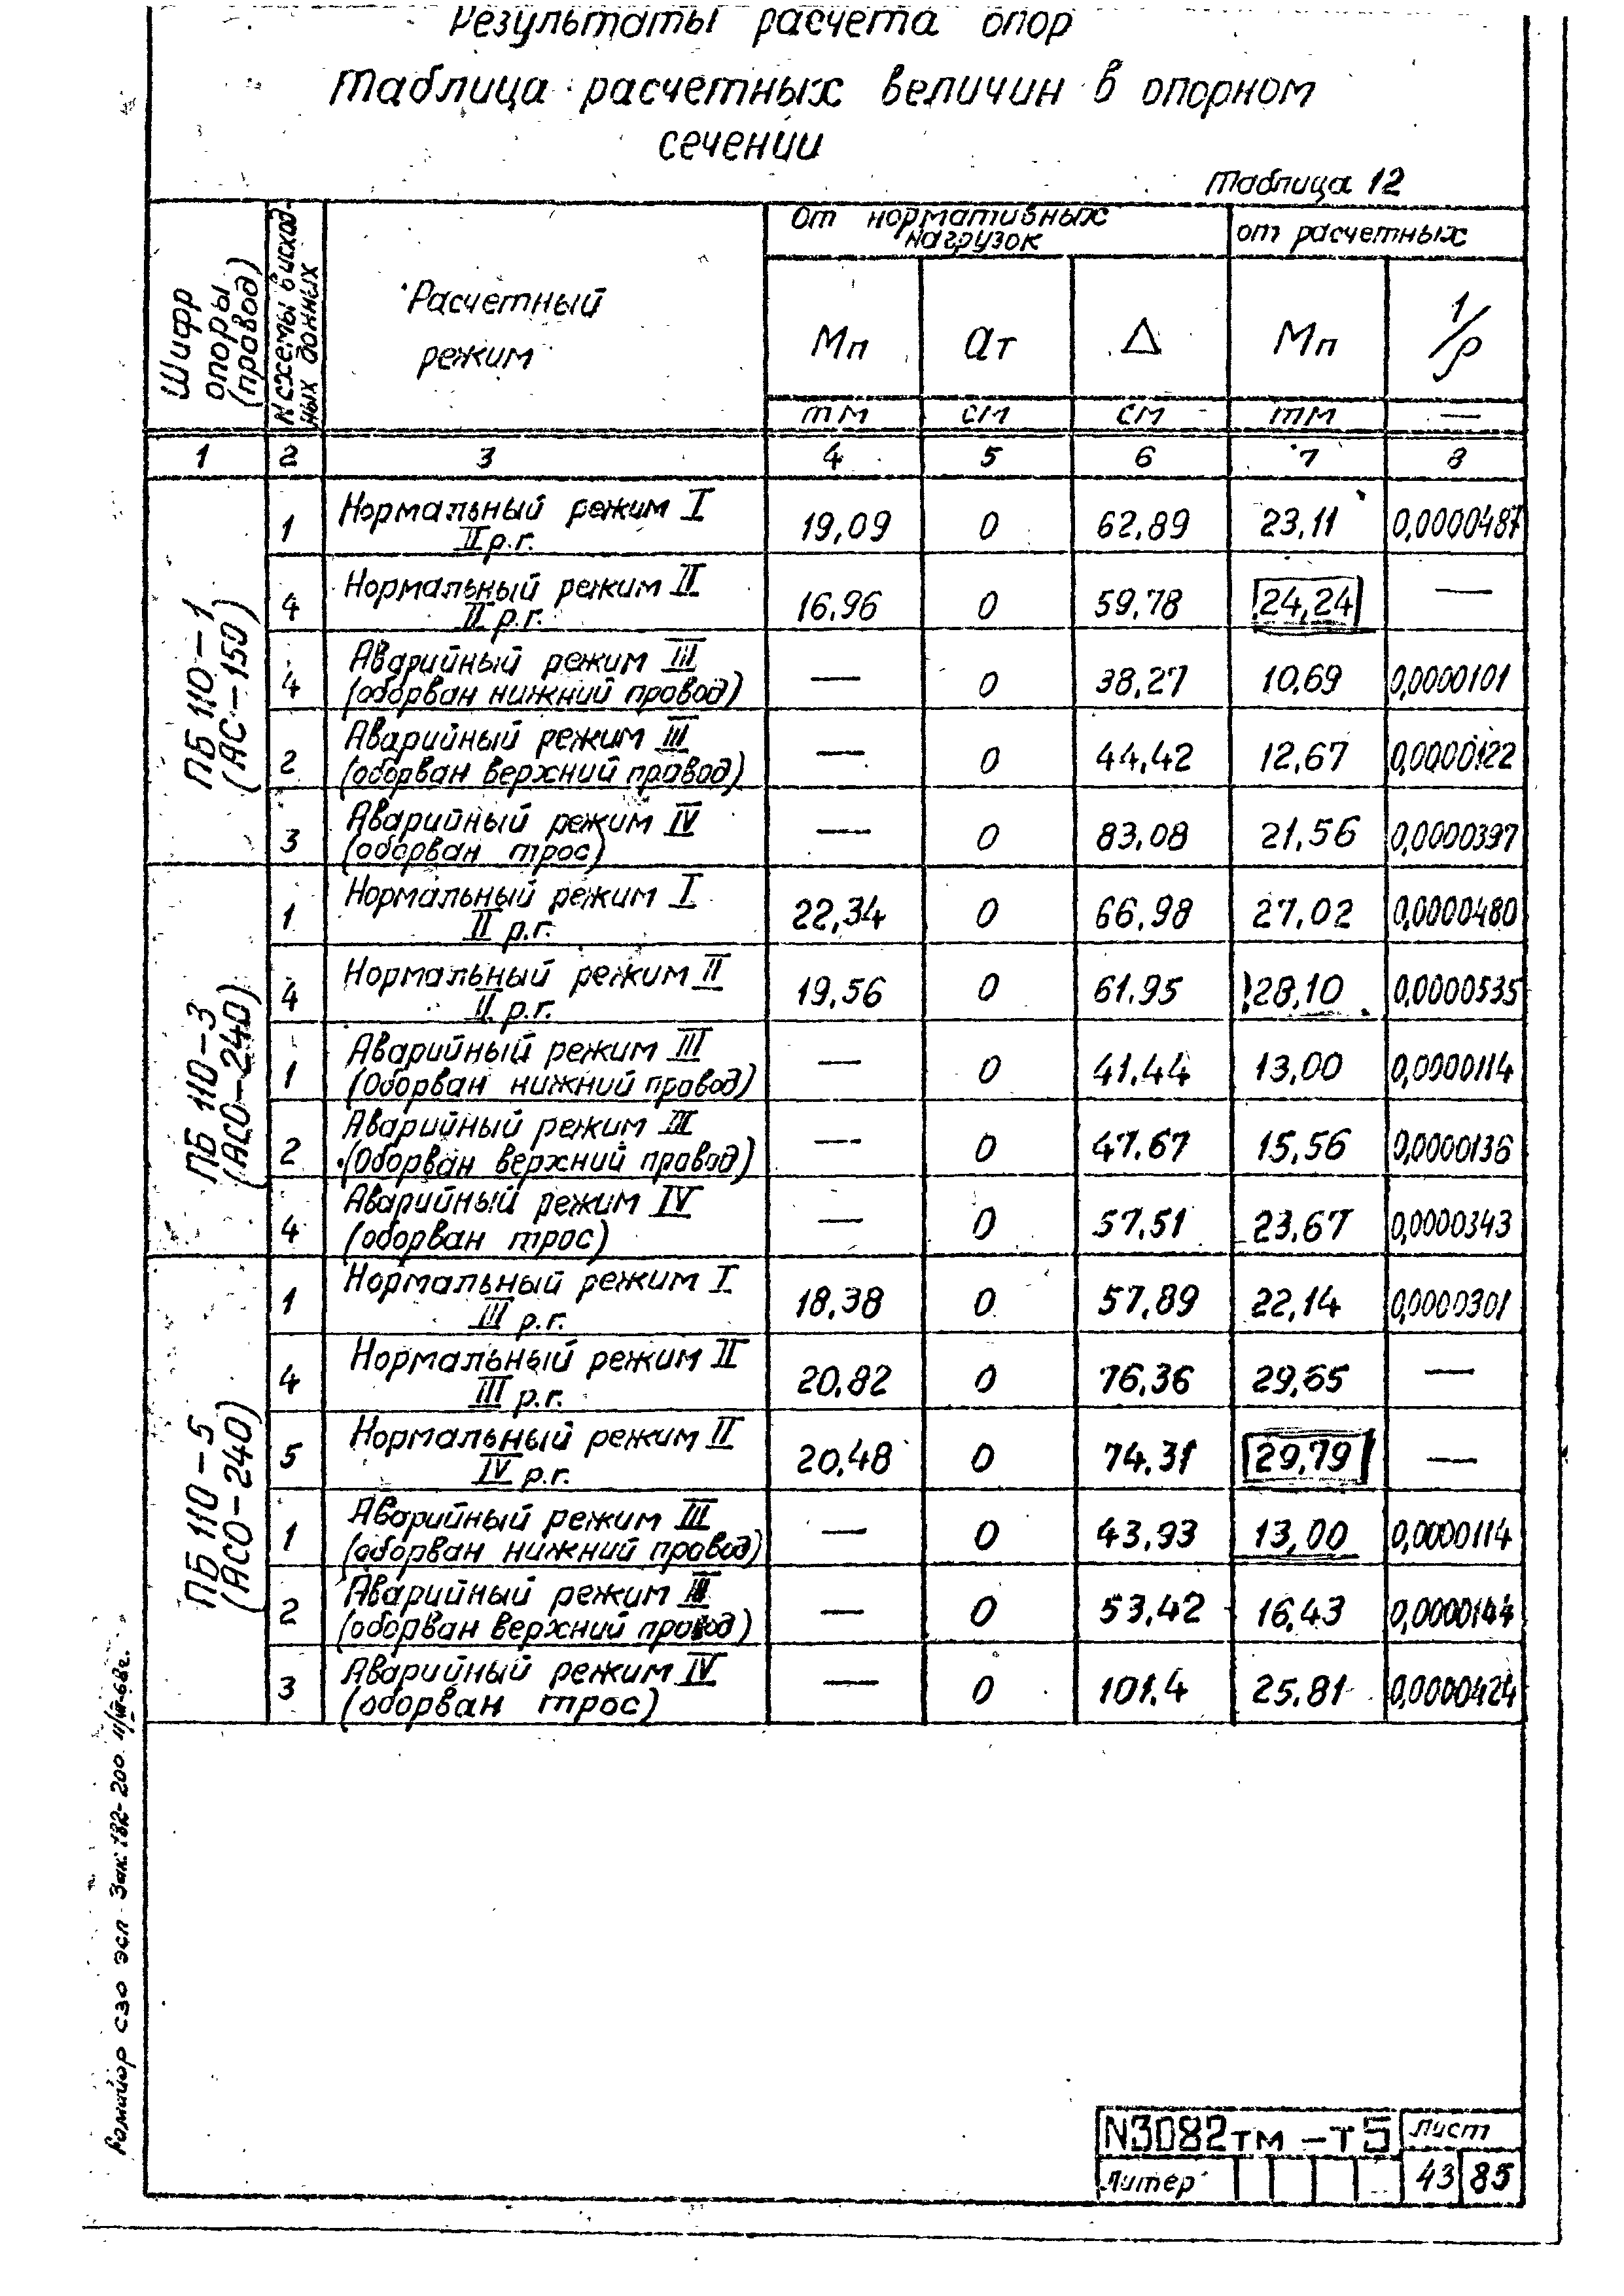 Результаты расчета опор
Таблица расчетных величин в опорном
сечении
Таблица 12
Шифр опоры (провод)
N схемы в исход-
ных данных
Расчетный
режим
От нормативных
нагрузок
от расчетных
Мп ат Δ Мп 1/ρ
тм см см тм —
1 2 3 4 5 6 7 8
ПБ 110-1
(АС-150)
1 Нормальный режим I
II р.г. 19,09 0 62,89 23,11 0,0000487
4 Нормальный режим II
II р.г. 16,96 0 59,78 24,24 —
4 Аварийный режим III
(оборван нижний провод) — 0 38,27 10,69 0,0000101
2 Аварийный режим III
(оборван верхний провод) — 0 44,42 12,67 0,0000122
3 Аварийный режим IV
(оборван трос) — 0 83,08 21,56 0,0000397
ПБ 110-3
(АСО-240)
1 Нормальный режим I
II р.г. 22,34 0 66,98 27,02 0,0000480
4 Нормальный режим II
II р.г. 19,56 0 61,95 28,10 0,0000535
1 Аварийный режим III
(Оборван нижний провод) — 0 41,44 13,00 0,0000114
2 Аварийный режим III
(Оборван верхний провод) — 0 47,67 15,56 0,0000136
4 Аварийный режим IV
(оборван трос) — 0 57,51 23,67 0,0000343
ПБ 110-5
(АСО-240)
1 Нормальный режим I
III р.г. 18,38 0 57,89 22,14 0,0000301
4 Нормальный режим II
III р.г. 20,82 0 76,36 29,65 —
5 Нормальный режим II
IV р.г. 20,48 0 74,31 29,79 —
1 Аварийный режим III
(оборван нижний провод) — 0 43,93 13,00 0,0000114
2 Аварийный режим III
(оборван верхний провод) — 0 53,42 16,43 0,0000144
3 Аварийный режим IV
(оборван трос) — 0 101,4 25,81 0,0000424
СЗО ЭСП Зак. 182-200
N3082тм-т5 Лист
Литер 43 85